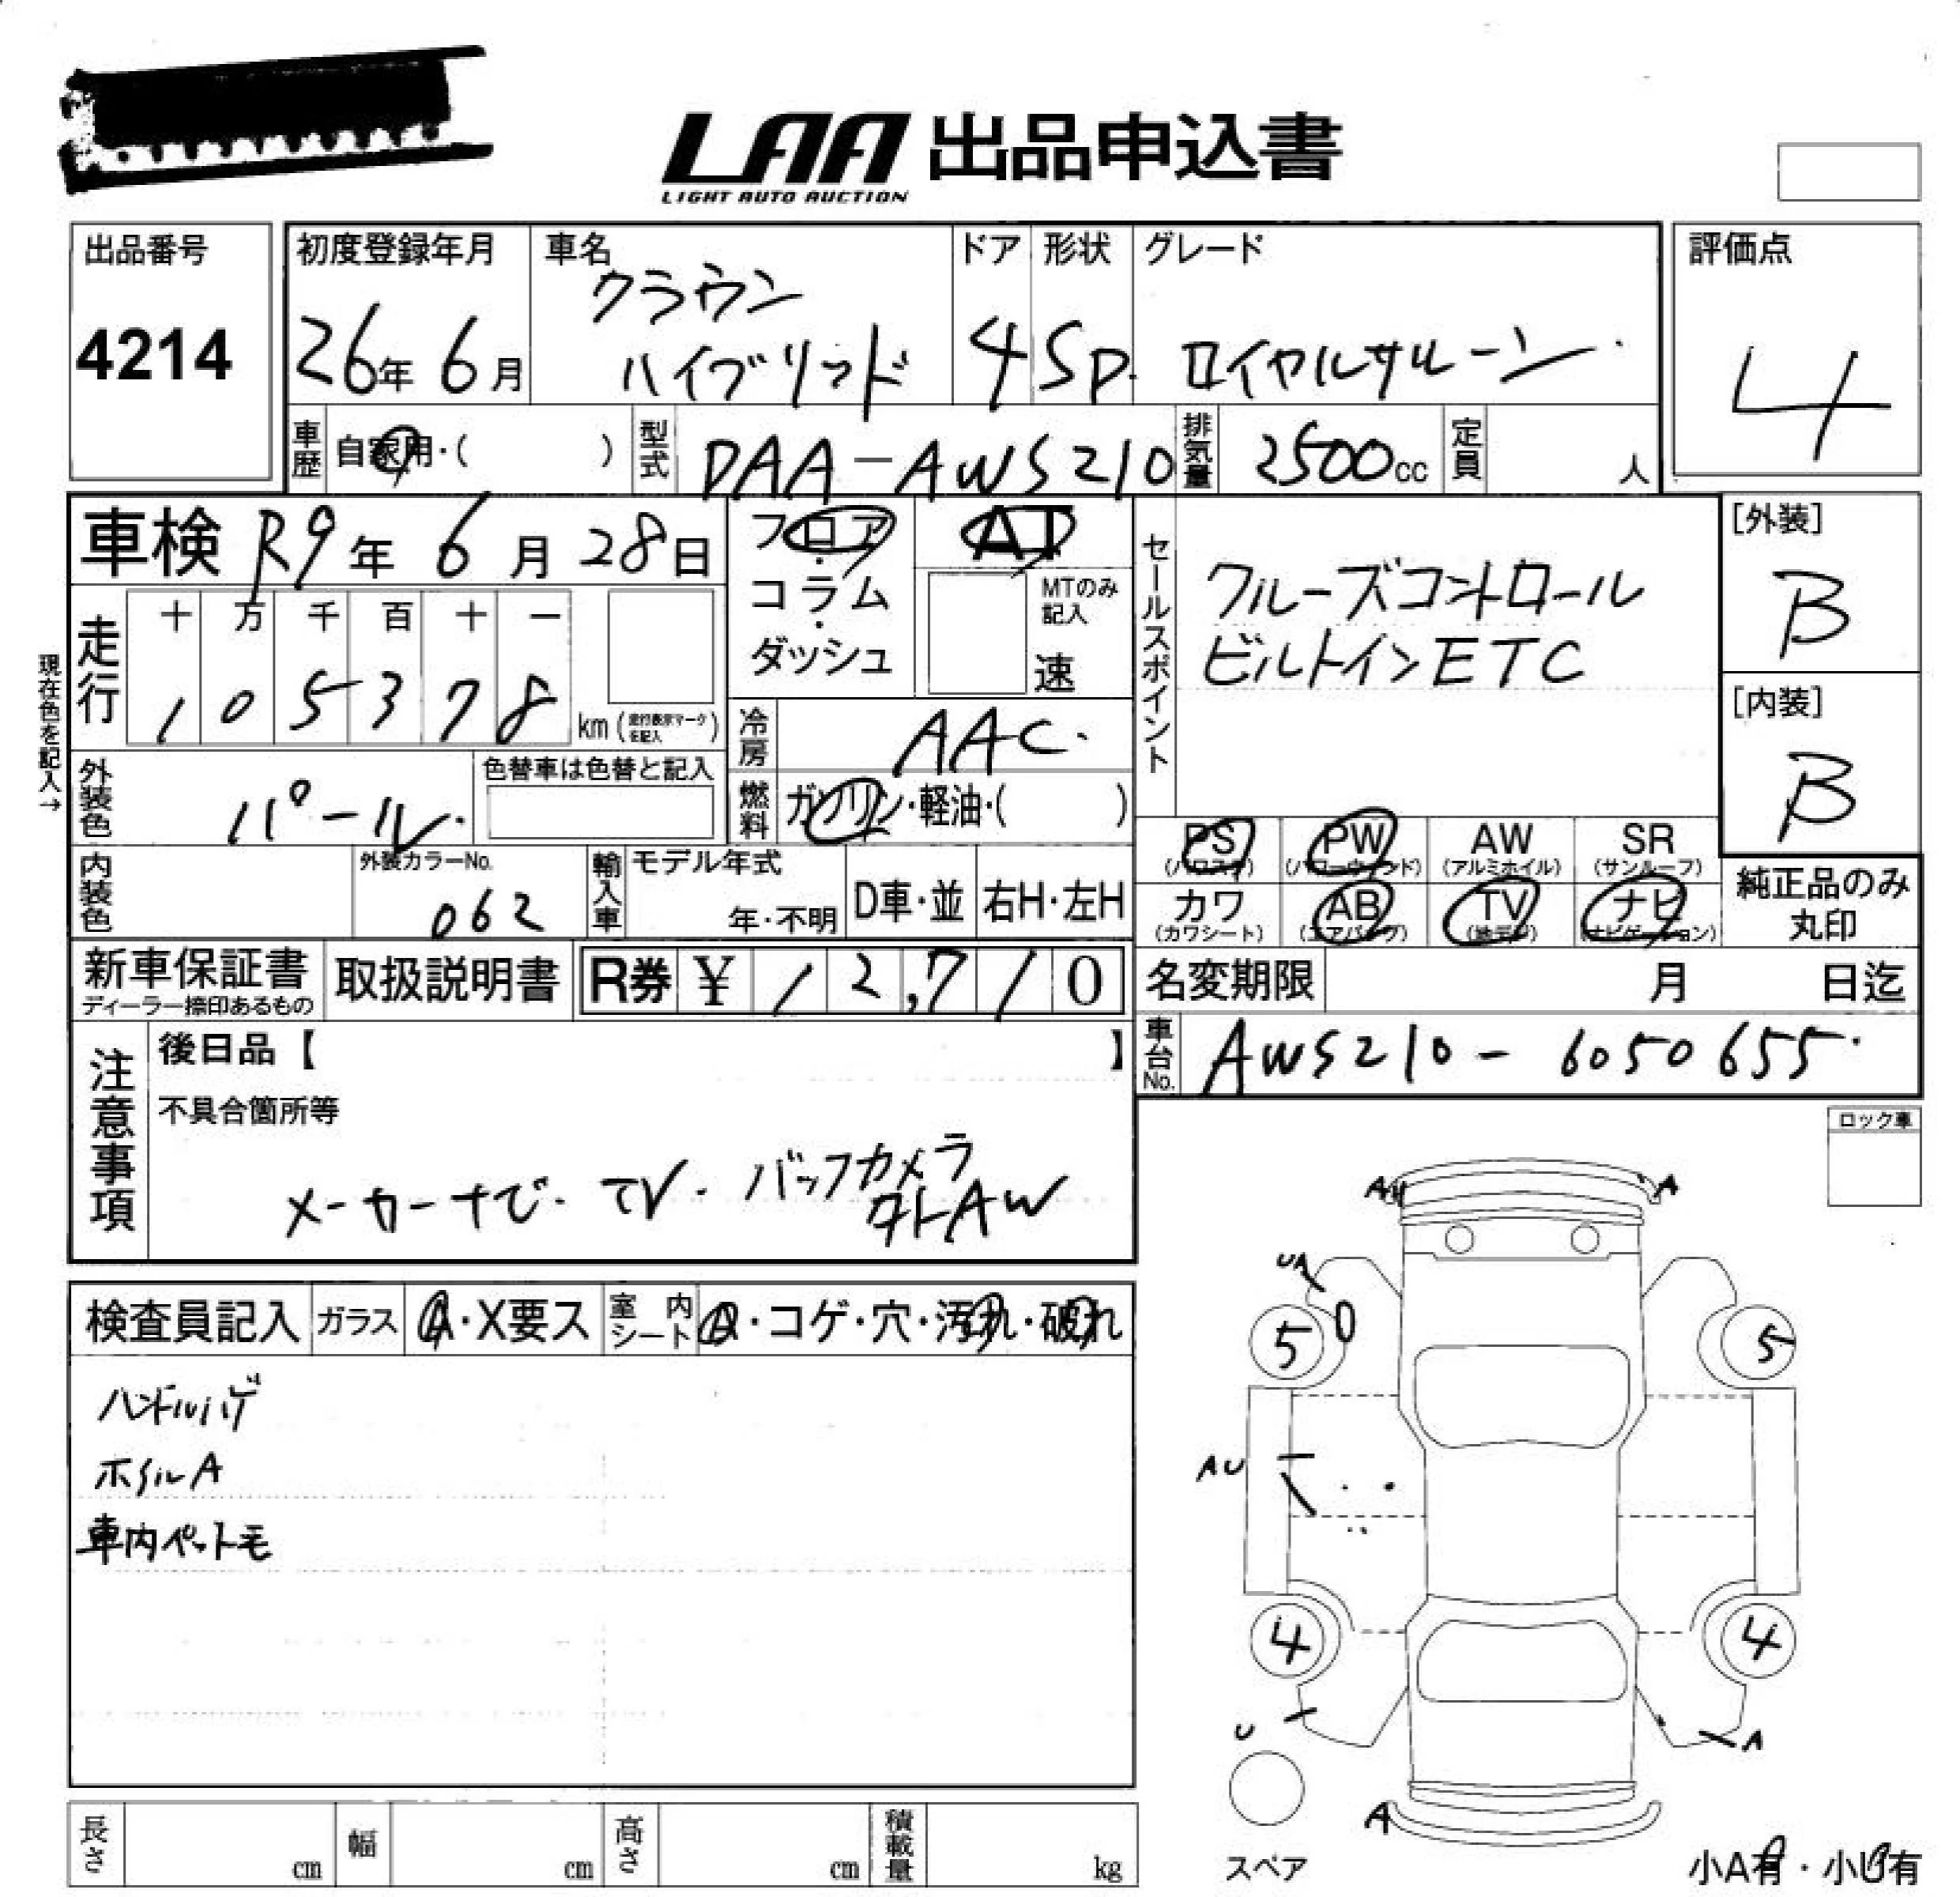 LAA 出品申込書
LIGHT AUTO AUCTION
出品番号
4214
初度登録年月
26年 6月
車名
クラウン
ハイブリッド
ドア
4
形状
SD
グレード
ロイヤルサルーン
評価点
4
車歴
自家用・( )
型式
DAA-AWS210
排気量
2500cc
定員
人
車検 R9年 6月 28日
フロア・コラム・ダッシュ
AT
MTのみ記入
速
セールスポイント
クルーズコントロール
ビルトインETC
[外装]
B
[内装]
B
現在色を記入→
走行
十 万 千 百 十 一
1 0 5 3 7 8
km (走行表示マークを記入)
冷房
AAC
燃料
ガソリン・軽油・( )
外装色
パール
色替車は色替と記入
内装色
外装カラーNo.
062
輸入車
モデル年式
年・不明
D車・並
右H・左H
PS
(パワステ)
PW
(パワーウィンド)
AW
(アルミホイル)
SR
(サンルーフ)
カワ
(カワシート)
AB
(エアバッグ)
TV
(地デジ)
ナビ
(ナビゲーション)
純正品のみ
丸印
新車保証書
ディーラー捺印あるもの
取扱説明書
R券 ¥ 1 2,7 1 0
名変期限 月 日迄
車台No.
AWS210-6050655
注意事項
後日品【 】
不具合箇所等
メーカーナビ・TV・バックカメラ
外AW
ロック車
検査員記入
ガラス
A・X要ス
室内シート
・コゲ・穴・汚れ・破れ
ハンドルハゲ
ホイルA
車内ペット毛
A
A
UA
5
5
AU
4
4
U
A
A
スペア
小A有・小U有
長さ cm
幅 cm
高さ cm
積載量 kg